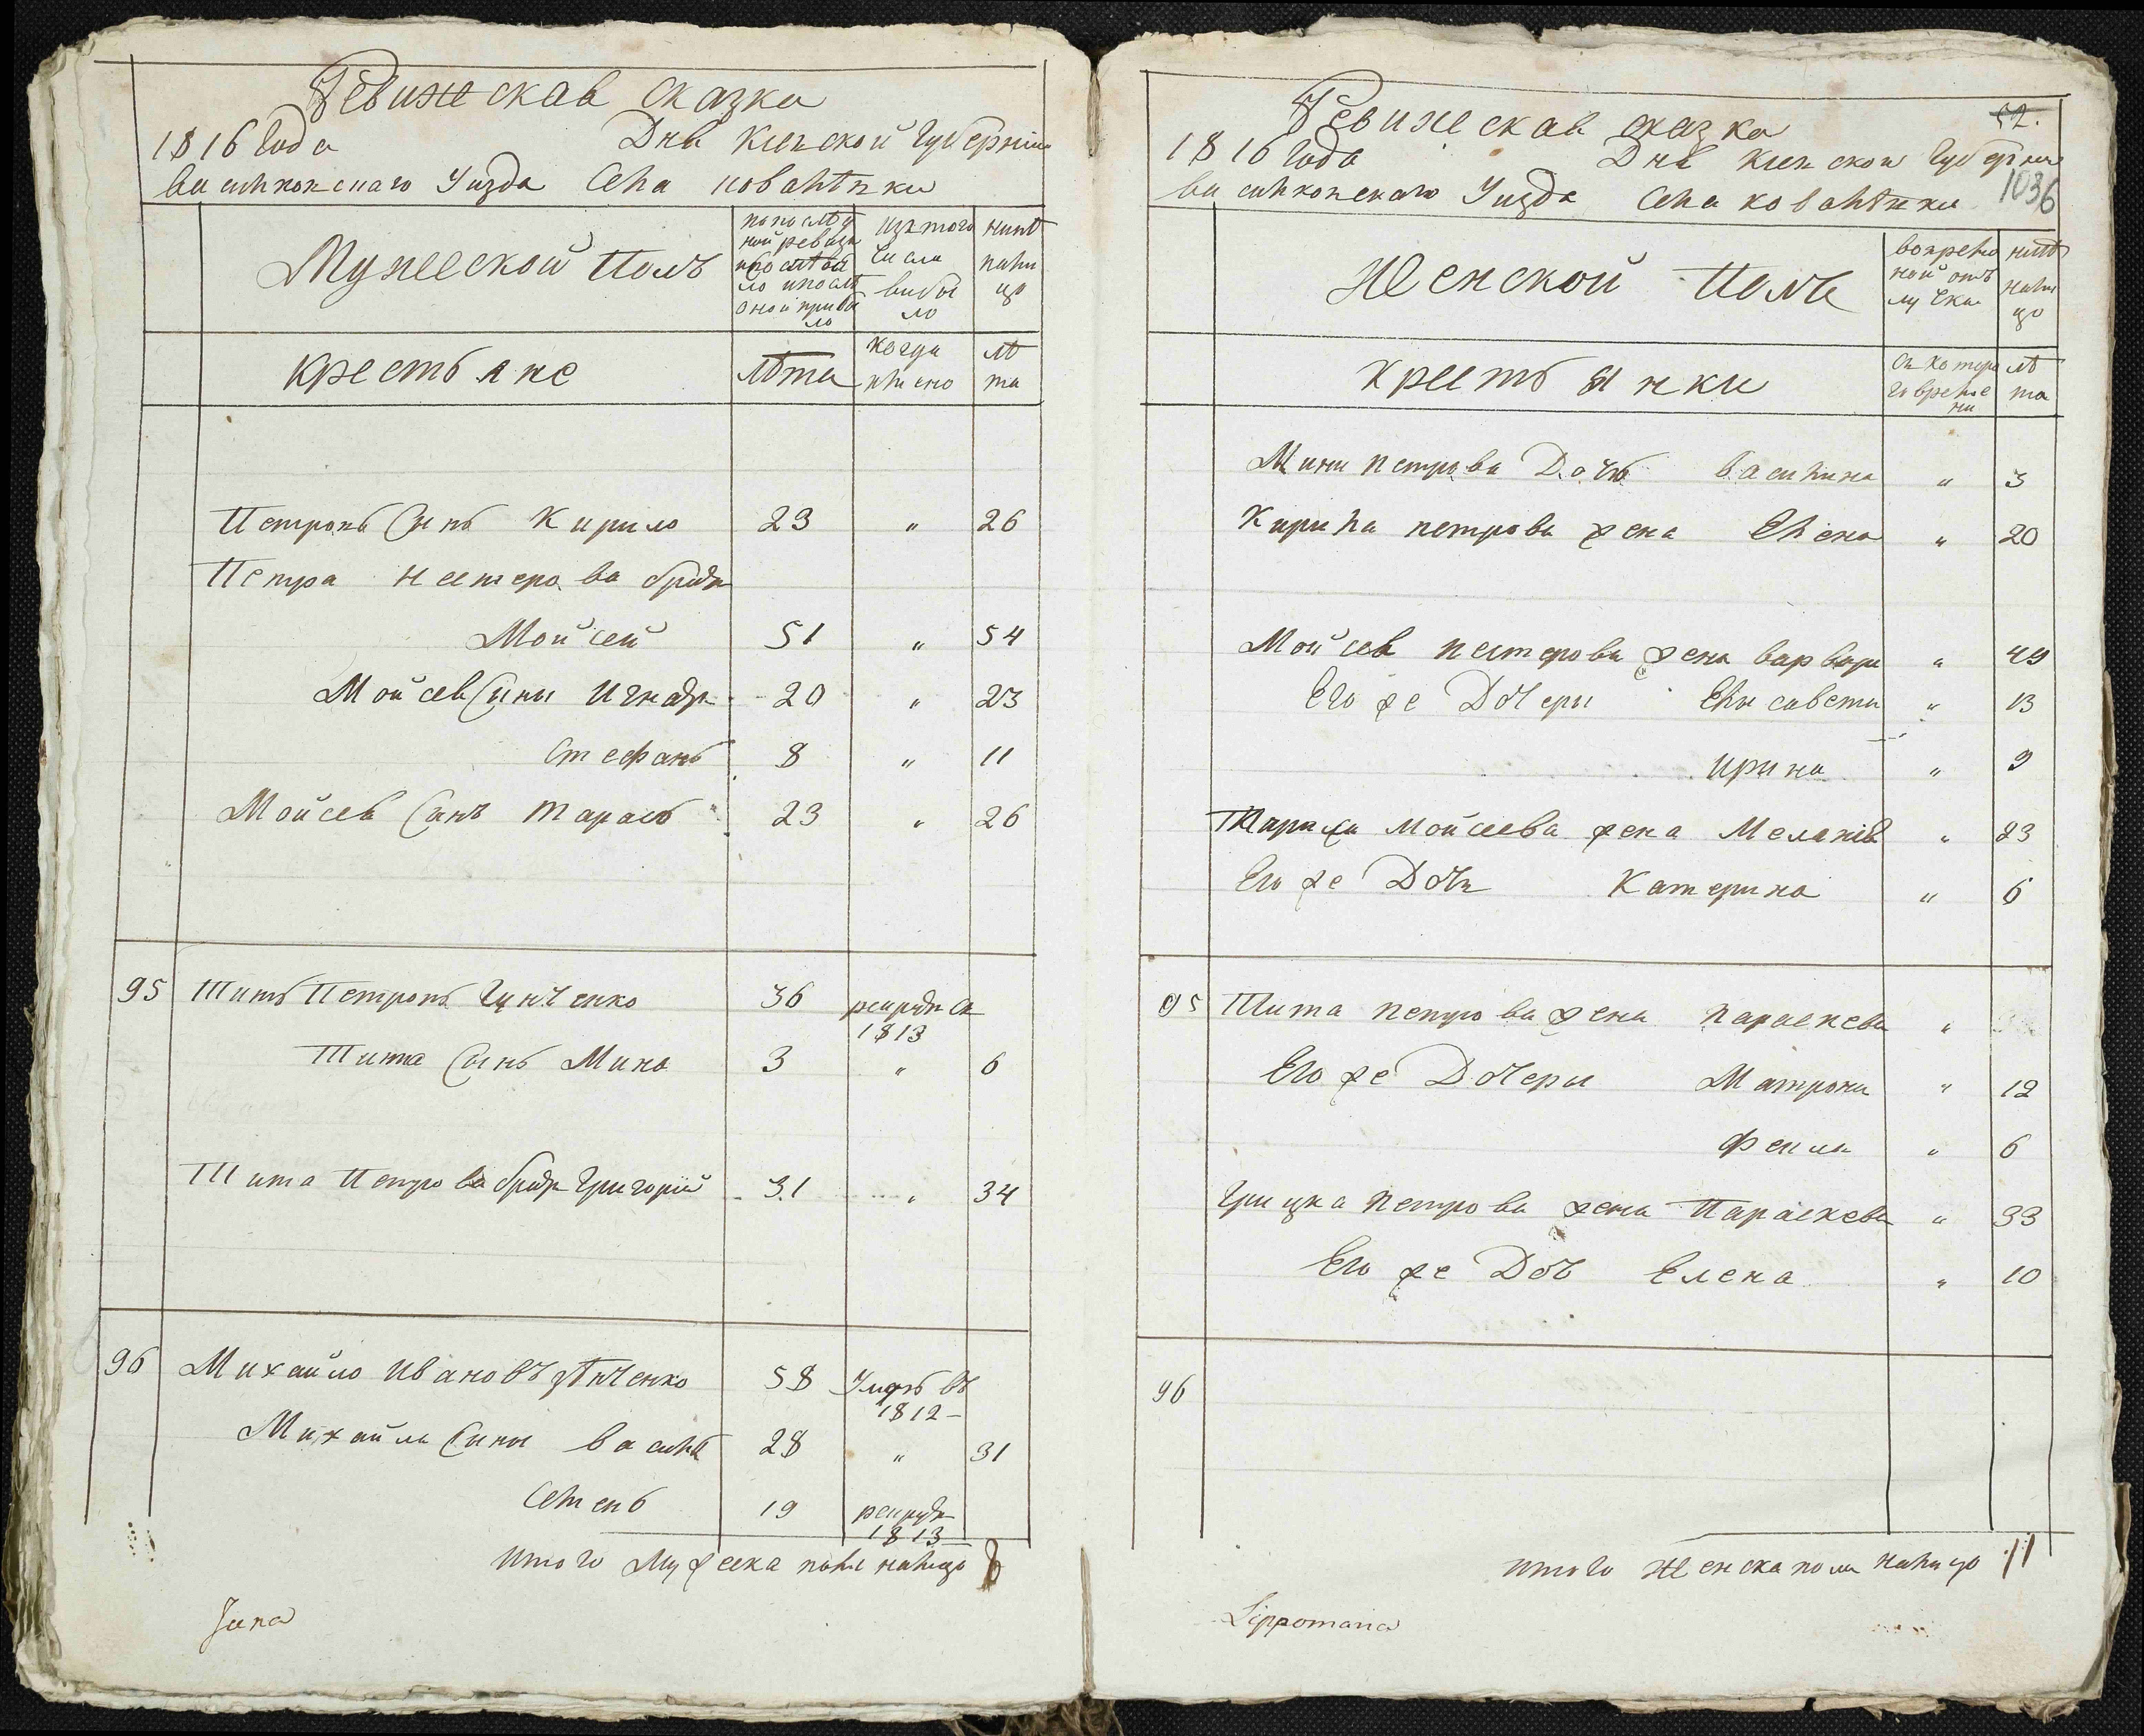 Ревижская сказка
1816 Года Дня Киевской Губернии
Василковскаго Уизда Села Ковалевки
Мужеской Полъ
по последней ревизи состояло и после оной прибыло
изътого числа выбыло
ныне налицо
Крестьяне
лета
когда именно
лета
Петровъ Сынъ Кирило 23 " 26
Петра Нестерова братъ
Мойсей 51 " 54
Мойсея Сыны Игнатъ 20 " 23
Стефанъ 8 " 11
Мойсея Сынъ Тарасъ 23 " 26
95 Титъ Петровъ 36 рекрутъ
1813
Тита Сынъ Мина 3 " 6
Тита Петрова братъ Григорий 31 " 34
96 Михайло Ивановъ 58 Умръ въ
1812
Михайла Сыны Василь 28 " 31
Семенъ 19 рекрутъ
1813
Итого Мужеска пола налицо
Juna
Ревижская сказка 52.
1816 Года Дня Киевской Губернии
1036
Василковскаго Уизда Села Ковалевки
Женской Полъ
во временной отлучки
ныне налицо
Крестьянки
съ котораго времени
лета
Мини Петрова Дочь Василина " 3
Кирила Петрова жена Елена " 20
Мойсея Нестерова жена Варвара " 49
Его же Дочери Елисавета " 13
Ирина " 9
Тараса Мойсеева жена Меланія " 23
Его же Дочь Катерина " 6
95 Тита Петрова жена Параскева "
Его же Дочери Матрона " 12
Фекла " 6
Грицка Петрова жена Параскева " 33
Его же Доч Елена " 10
96
Итого Женска пола налицо 11
Lippomana